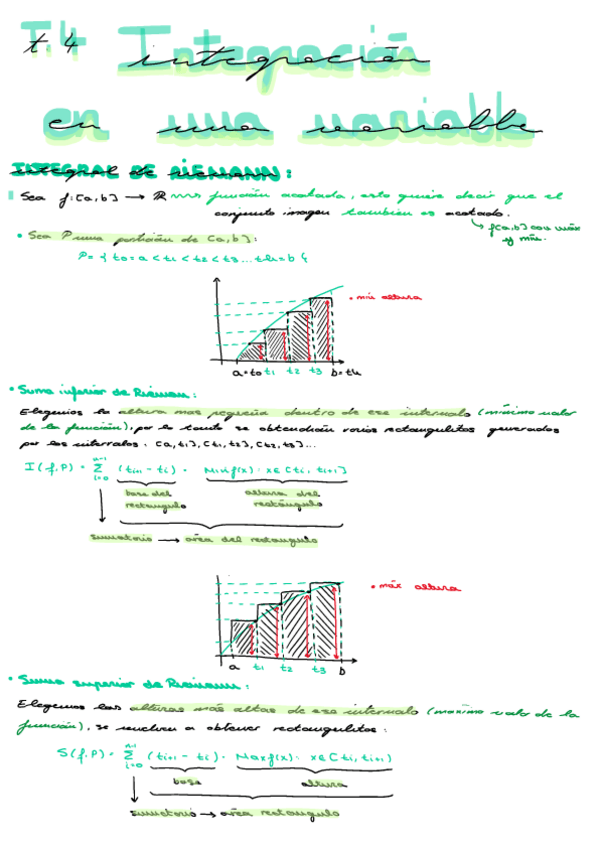 t.4 Integración
en una variable
INTEGRAL DE RIEMANN:
Sea f:[a,b] → ℝ una función acotada, esto quiere decir que el
conjunto imagen también es acotado.
↳ f[a,b] con máx
y mín.
• Sea P una partición de [a,b]:
P = { t0=a < t1 < t2 < t3 ... tk=b }
• mín altura
a=t0 t1 t2 t3 b=tk
• Suma inferior de Riemann:
Elegimos la altura más pequeña dentro de ese intervalo (mínimo valor
de la función), por lo tanto se obtendrán varios rectangulitos generados
por los intervalos: [a,t1], [t1,t2], [t2,t3]...
I(f,P) = Σ (ti+1 - ti) · Minf(x): x∈[ti, ti+1]
n-1
i=0
base del altura del
rectángulo rectángulo
sumatorio → área del rectángulo
• máx altura
a t1 t2 t3 b
• Suma superior de Riemann:
Elegimos las alturas más altas de ese intervalo (máximo valor de la
función), se vuelven a obtener rectangulitos:
S(f,P) = Σ (ti+1 - ti) · Maxf(x): x∈[ti, ti+1)
n-1
i=0
base altura
sumatorio → área rectángulo